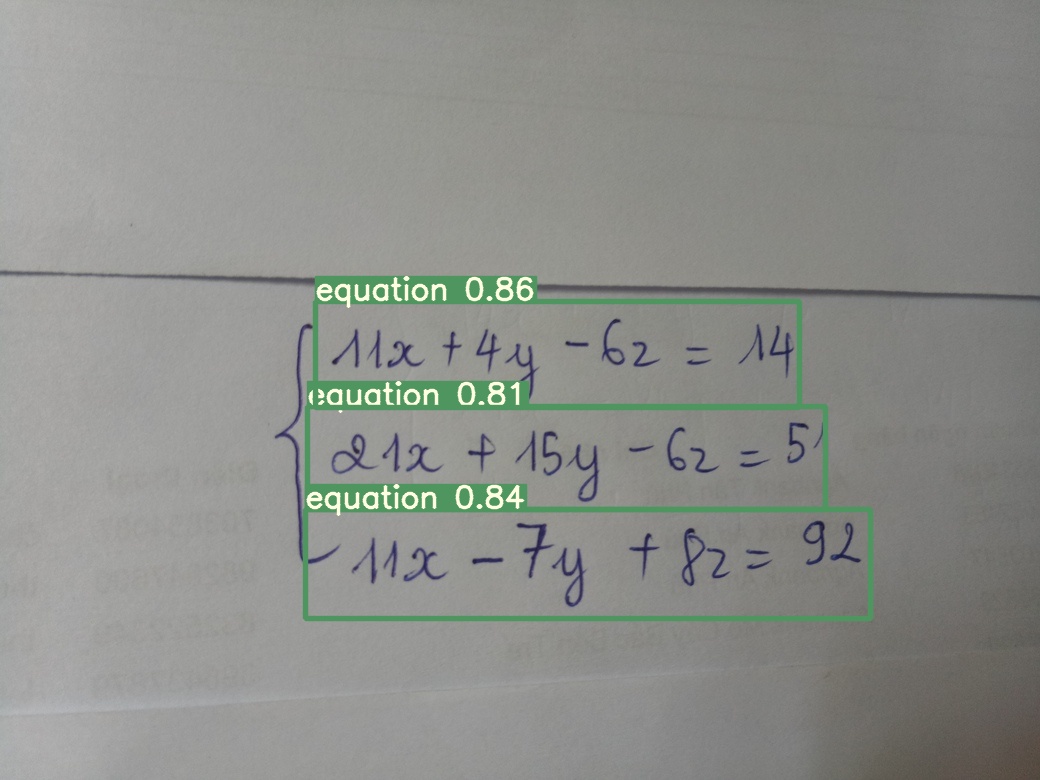 equation 0.86
11x + 4y - 6z = 14
equation 0.81
21x + 15y - 6z = 5
equation 0.84
- 11x - 7y + 8z = 92